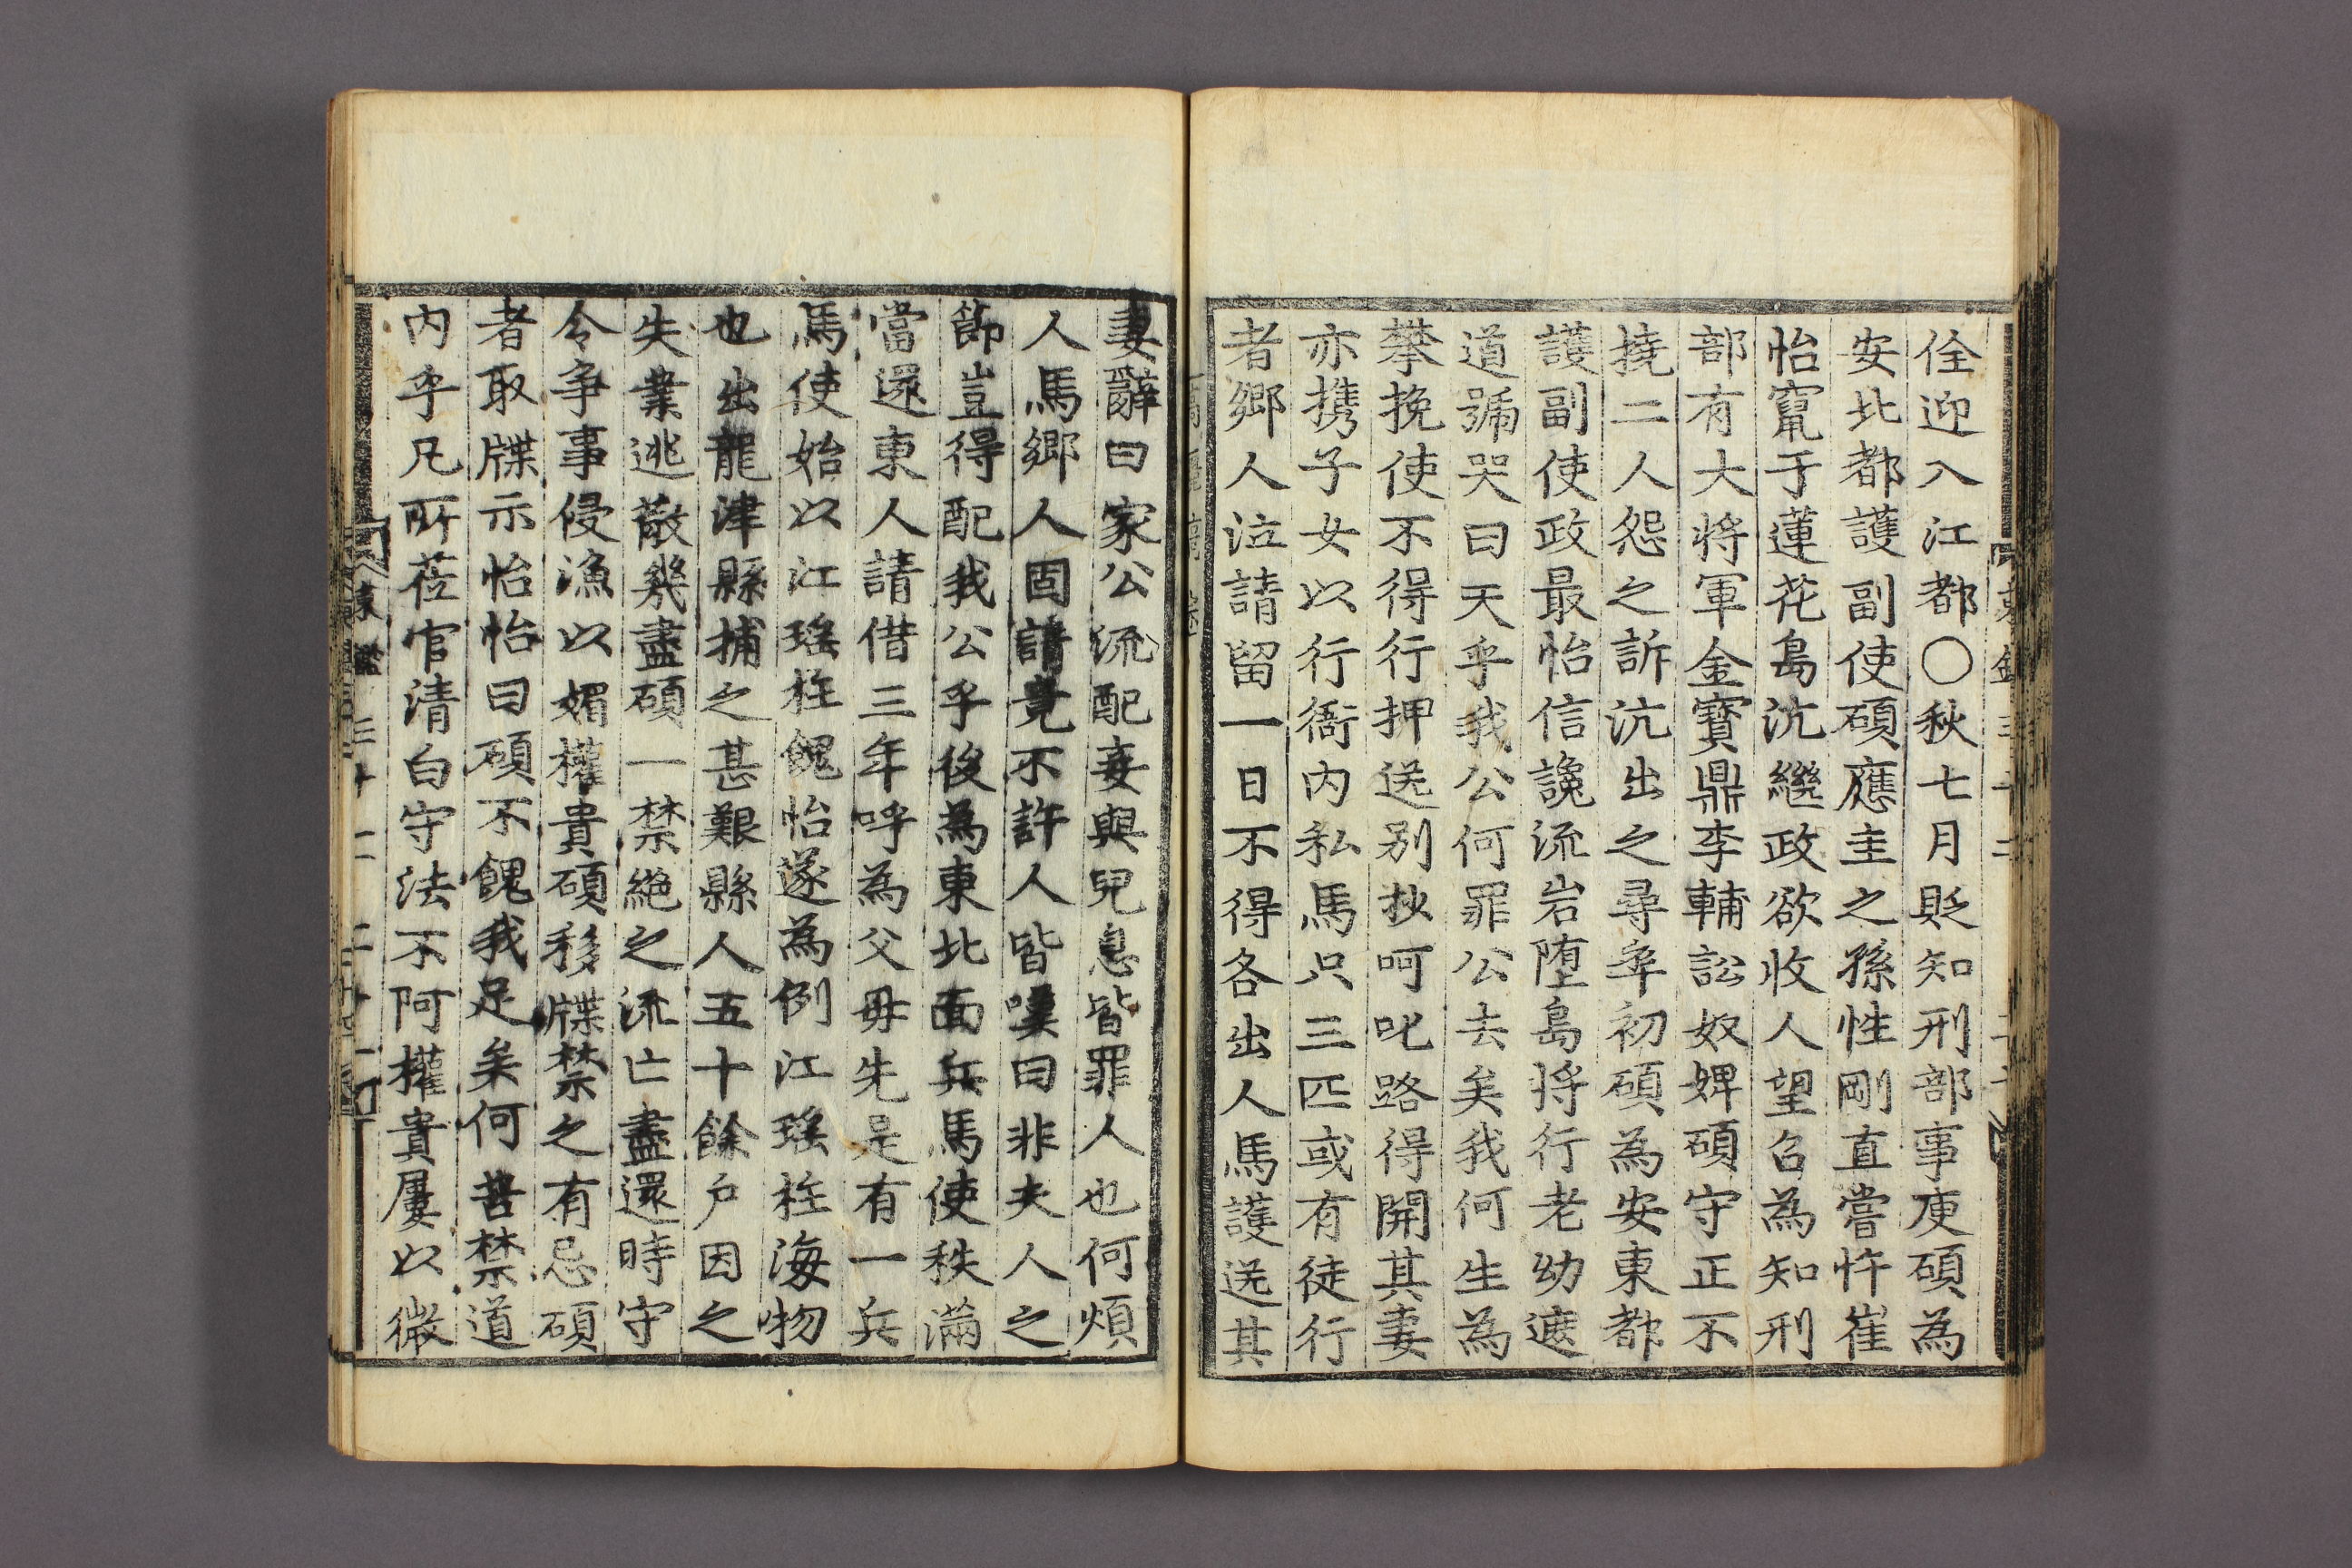 佺迎入江都〇秋七月貶知刑部事庾碩為
安北都護副使碩應圭之孫性剛直嘗忤崔
怡竄于蓮花島沆繼政欲收人望召為知刑
部有大將軍金寶鼎李輔訟奴婢碩守正不
撓二人怨之訴沆出之尋卒初碩為安東都
護副使政最怡信讒流岩墮島將行老幼遮
道號哭曰天乎我公何罪公去矣我何生為
攀挽使不得行押送別抄呵叱路得開其妻
亦携子女以行衙內私馬只三匹或有徒行
者鄉人泣請留一日不得各出人馬護送其
妻辭曰家公流配妾與兒息皆罪人也何煩
人馬鄉人固請竟不許人皆嘆曰非夫人之
節豈得配我公乎後為東北面兵馬使秩滿
當還東人請借三年呼為父母先是有一兵
馬使始以江瑤柱餽怡遂為例江瑤柱海物
也出龍津縣捕之甚艱縣人五十餘戶因之
失業逃散幾盡碩一禁絶之流亡盡還時守
令爭事侵漁以媚權貴碩移牒禁之有忌碩
者取牒示怡怡曰碩不餽我足矣何苦禁道
內乎凡所莅官清白守法不阿權貴屢以微